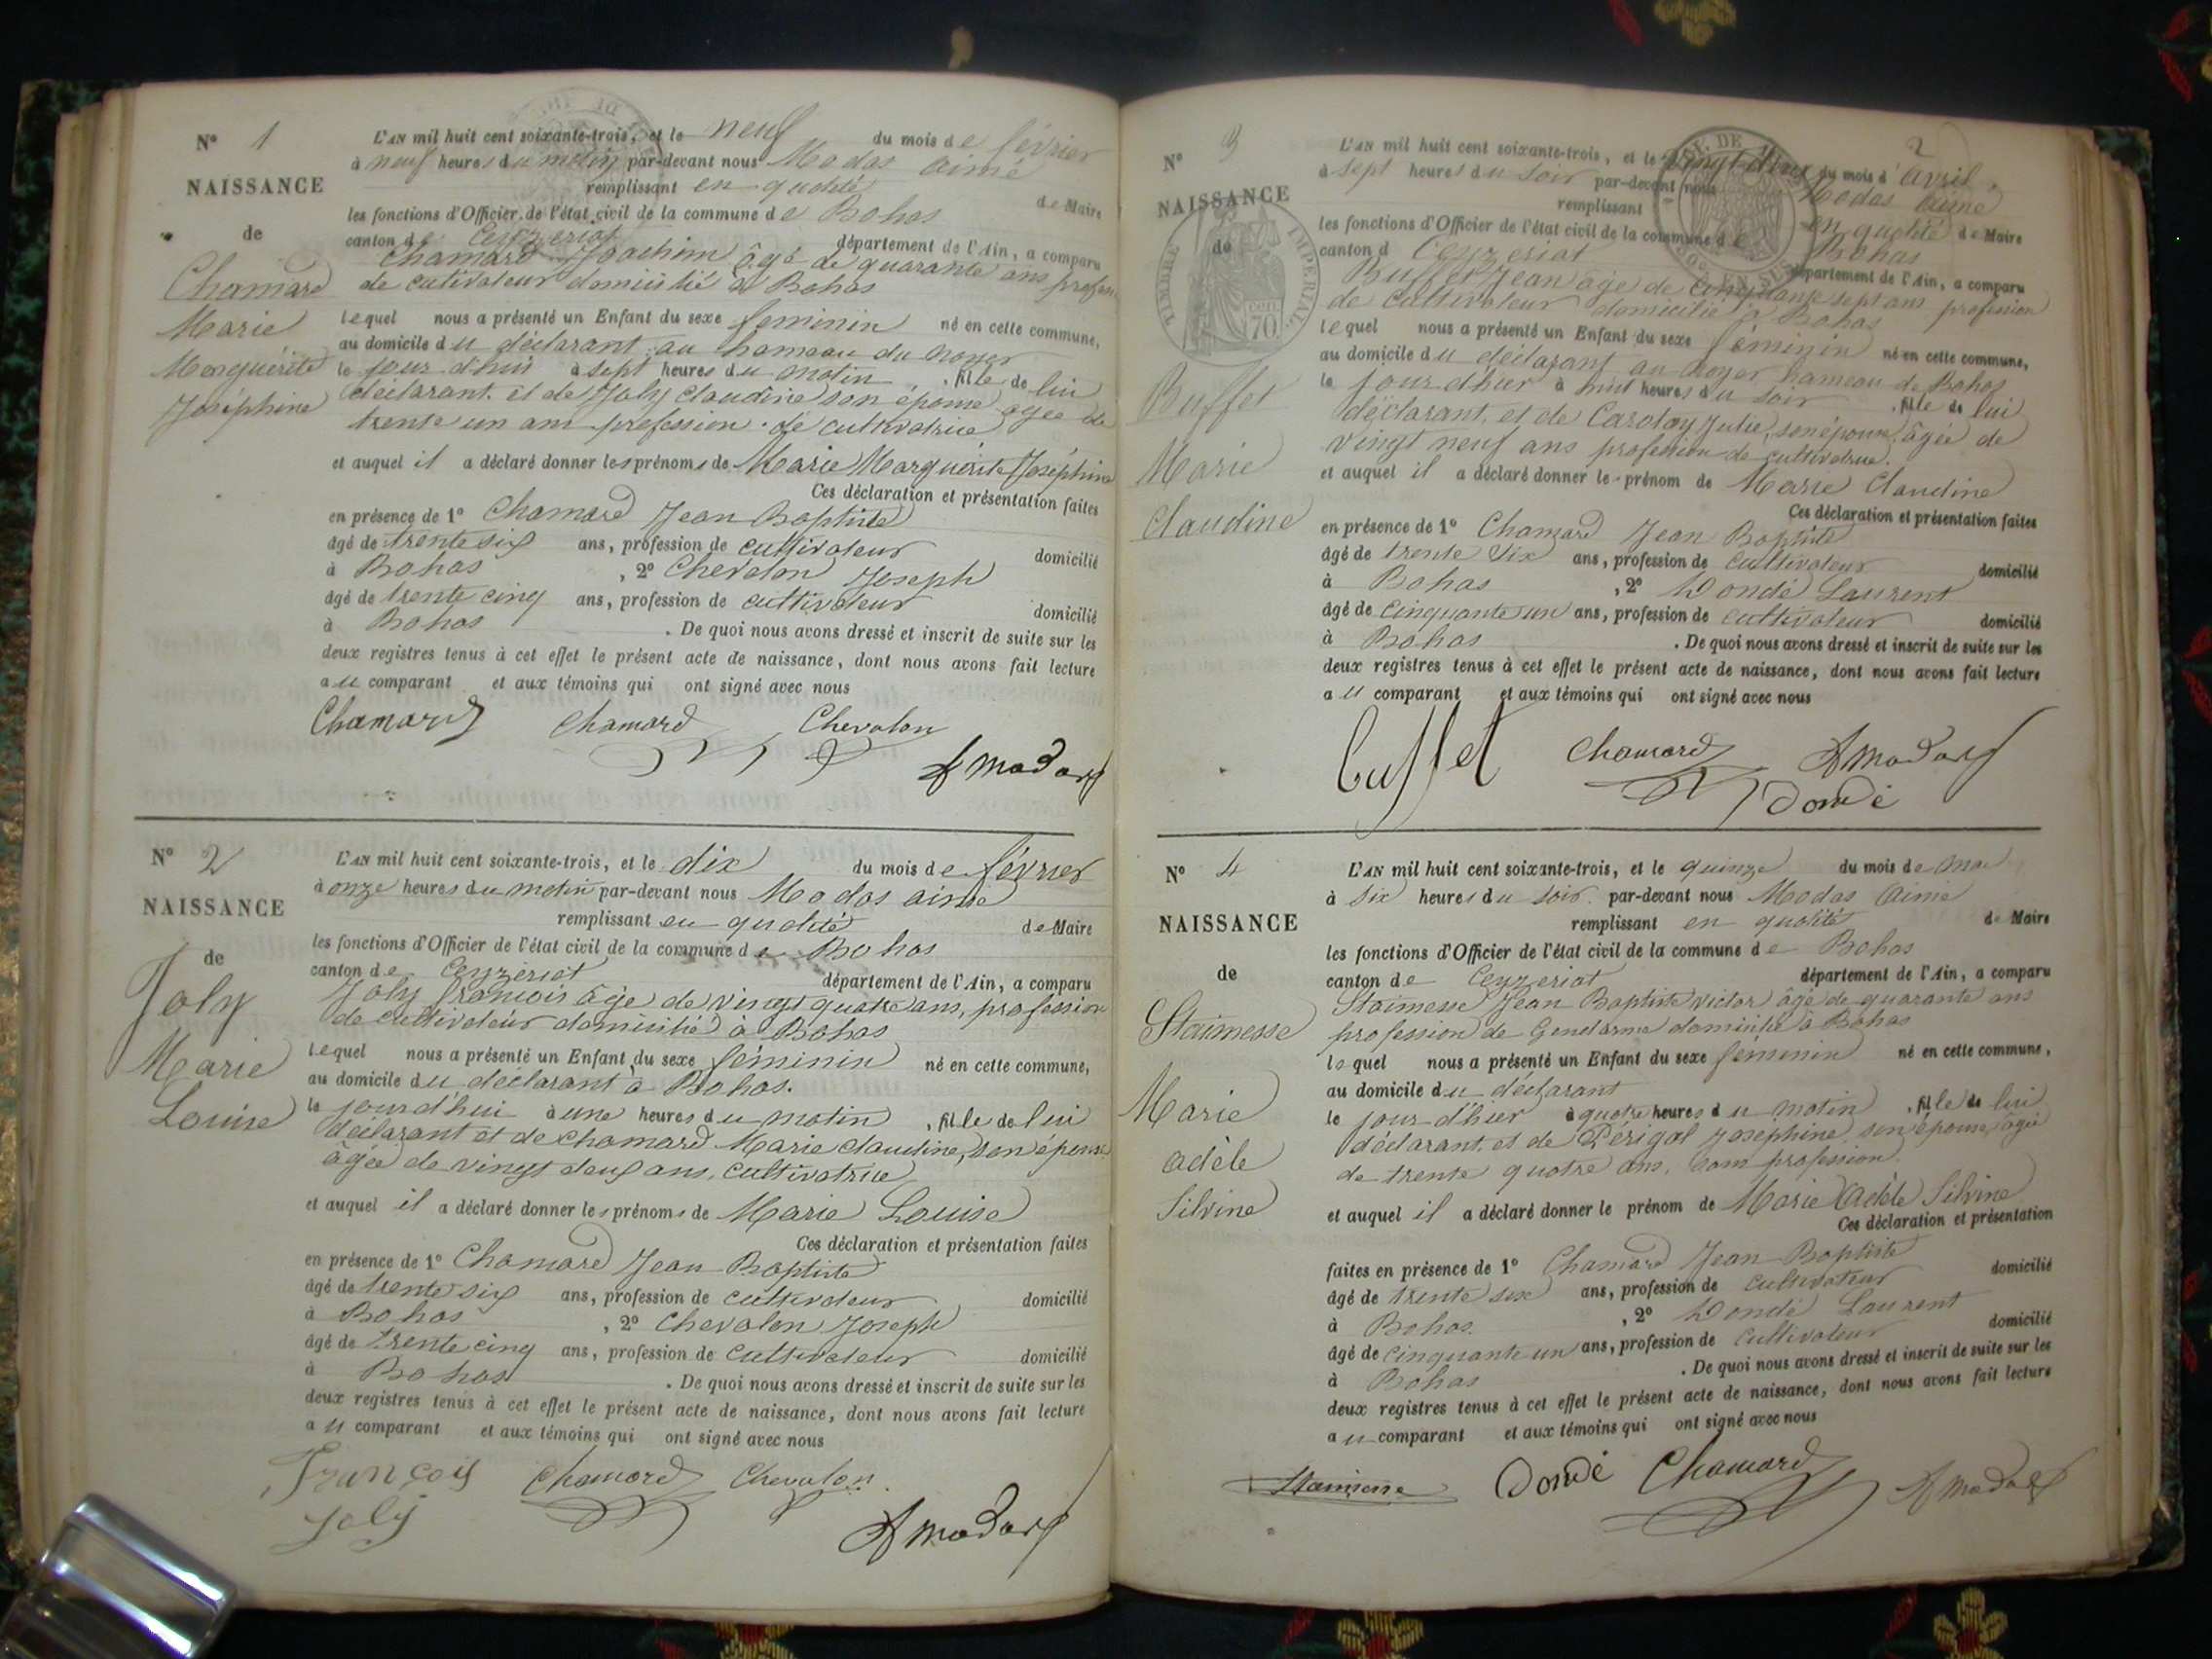 N° 1
NAISSANCE
de
Chamard
Marie
Marguérite
Joséphine
L'AN mil huit cent soixante-trois, et le neuf du mois de février
à neuf heures du matin par-devant nous Modas aimé
remplissant en qualité de Maire
les fonctions d'Officier de l'état civil de la commune de Bohas
canton de Ceyzeriat département de l'Ain, a comparu
Chamard Joachim âgé de quarante ans profession
de cultivateur domicilié à Bohas
lequel nous a présenté un Enfant du sexe féminin né en cette commune,
au domicile du déclarant au hameau du noyer
le jour d'hui à sept heures du matin, fille de lui
déclarant et de Joly Claudine son épouse agée de
trente un ans profession de cultivatrice
et auquel il a déclaré donner les prénoms de Marie Marguérite Joséphine
Ces déclaration et présentation faites
en présence de 1° Chamard Jean Baptiste
âgé de trente six ans, profession de cultivateur domicilié
à Bohas, 2° Chevalon Joseph
âgé de trente cinq ans, profession de cultivateur domicilié
à Bohas. De quoi nous avons dressé et inscrit de suite sur les
deux registres tenus à cet effet le présent acte de naissance, dont nous avons fait lecture
au comparant et aux témoins qui ont signé avec nous
Chamard Chamard Chevalon
A Modas
N° 2
NAISSANCE
de
Joly
Marie
Louise
L'AN mil huit cent soixante-trois, et le dix du mois de février
à onze heures du matin par-devant nous Modas aimé
remplissant en qualité de Maire
les fonctions d'Officier de l'état civil de la commune de Bohas
canton de Ceyzériat département de l'Ain, a comparu
Joly françois âgé de vingt quatre ans, profession
de cultivateur domicilié à Bohas
lequel nous a présenté un Enfant du sexe féminin né en cette commune,
au domicile du déclarant à Bohas.
le jourd'hui à une heures du matin, fille de lui
déclarant et de chamard Marie claudine, son épouse
âgée de vingt deux ans, cultivatrice
et auquel il a déclaré donner les prénoms de Marie Louise
Ces déclaration et présentation faites
en présence de 1° Chamard Jean Baptiste
âgé de trente six ans, profession de cultivateur domicilié
à Bohas, 2° Chevalon Joseph
âgé de trente cinq ans, profession de cultivateur domicilié
à Bohas. De quoi nous avons dressé et inscrit de suite sur les
deux registres tenus à cet effet le présent acte de naissance, dont nous avons fait lecture
au comparant et aux témoins qui ont signé avec nous
François Chamard Chevalon
Joly
A Modas
2
N° 3
NAISSANCE
de
TIMBRE IMPERIAL
70
Buffet
Marie
Claudine
L'AN mil huit cent soixante-trois, et le vingt deux du mois d'avril
à sept heures du soir par-devant nous Modas aimé
remplissant en qualité de Maire
les fonctions d'Officier de l'état civil de la commune de Bohas
canton d Ceyzeriat département de l'Ain, a comparu
Buffet Jean âgé de cinquante sept ans profession
de cultivateur domicilié à Bohas
lequel nous a présenté un Enfant du sexe féminin né en cette commune,
au domicile du déclarant au noyer hameau de Bohas
le jour d'hier à huit heures du soir, fille de lui
déclarant, et de Carotay Julie, son épouse, âgée de
vingt neuf ans profession de cultivatrice.
et auquel il a déclaré donner le prénom de Marie Claudine
Ces déclaration et présentation faites
en présence de 1° Chamard Jean Baptiste
âgé de trente six ans, profession de cultivateur domicilié
à Bohas, 2° Dondé Laurent
âgé de cinquante un ans, profession de cultivateur domicilié
à Bohas. De quoi nous avons dressé et inscrit de suite sur les
deux registres tenus à cet effet le présent acte de naissance, dont nous avons fait lecture
au comparant et aux témoins qui ont signé avec nous
buffet Chamard A Modas
Dondé
N° 4
NAISSANCE
de
Staimesse
Marie
adèle
Silvine
L'AN mil huit cent soixante-trois, et le quinze du mois de mai
à six heures du soir par-devant nous Modas Aimé
remplissant en qualité de Maire
les fonctions d'Officier de l'état civil de la commune de Bohas
canton de Ceyzeriat département de l'Ain, a comparu
Staimesse Jean Baptiste victor âgé de quarante ans
profession de Gendarme domicilié à Bohas
lequel nous a présenté un Enfant du sexe féminin né en cette commune,
au domicile du déclarant
le jour d'hier à quatre heures du matin, fille de lui
déclarant, et de Périgal Joséphine son épouse, agée
de trente quatre ans, sans profession.
et auquel il a déclaré donner le prénom de Marie Adèle Silvine
Ces déclaration et présentation
faites en présence de 1° Chamard Jean Baptiste
âgé de trente six ans, profession de cultivateur domicilié
à Bohas, 2° Dondé Laurent
âgé de cinquante un ans, profession de cultivateur domicilié
à Bohas. De quoi nous avons dressé et inscrit de suite sur les
deux registres tenus à cet effet le présent acte de naissance, dont nous avons fait lecture
au comparant et aux témoins qui ont signé avec nous
Staimesse Dondé Chamard A Modas